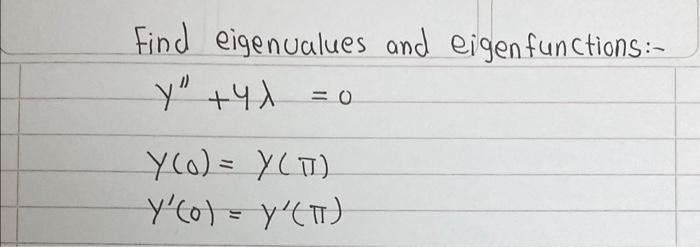 Find eigenvalues and eigenfunctions:-
y'' + 4λ = 0
y(0) = y(π)
y'(0) = y'(π)